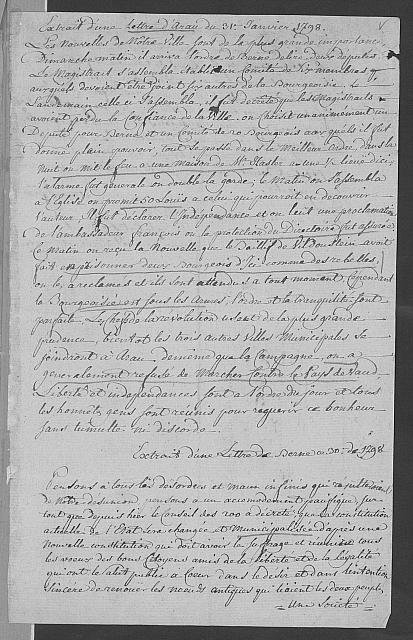 Extrait d'une Lettre d'Arau du 31e Janvier 1798.
Les Nouvelles de Nôtre Ville sont de la plus grande importance
Dimanche matin il arriva l'ordre de Berne d'elire deux deputés
Le Magistrat s'assembla établit un Comité de membres
auxquels devoient être joint six autres de la Bourgeoisie. Le
Landemain celle ci s'assembla, il fut decreté que les Magistrats
avoient perdu la Confiance de la Ville. on choisit unanimement un
Deputé pour Berne et un Comité de 20 Bourgeois auxquels il fut
donné plain pouvoir, tout se passa dans le Meilleur Ordre, dans la
Nuit on mit le feu a une maison de Mr Hasler a une 1/2 lieue d'ici
l'alarme fut generale on double la garde, le Matin on s'assembla
a l'Eglise on promit 50 Louis a celui qui pourroit en decouvrir
l'auteur, Il fit declarer l'Independance et on leut une proclamation
de l'ambassadeur françois ou la protection du Directoire fut assurée
Ce Matin on reçu la Nouvelle que le Baillif de Vildenstein avoit
fait empoisonner deux Bourgeois d'ici comme des rebelles,
on les a reclames et ils sont attendus a tout moment Cependant
la Bourgeoisie est sous les Armes, l'ordre et la tranquilité sont
parfaits. Les Chefs de la revolution usent de la plus grande
prudence, bientot les trois autres Villes Municipales se
joindront à Arau de même que la Campagne, on a
generalement refusé de Marcher Contre le Pays de Vaud.
Liberté et independances sont a l'ordre du jour et tous
les honnets gens sont reunis pour requerir ce bonheur
sans tumulte ni discorde.
Extrait d'une Lettre de Berne du 30e de 1798
Pensons a tous les desordres et maux infinis qui resulteroient
de Notre desunion pensons a un accomodement pacifique, sur
tout que depuis hier le Conseil des 200 a decreté, que la Constitution
actuelle de l'Etat sera changée et Municipalisée d'apres une
Nouvelle constitution qui doit avoir le suffrage et reunir tous
les voeux des bons Citoyens amis de la liberté et de la loyalité
qui ont le salut public a Coeur dans le desir et dans l'intention
sincere de renouer les noeuds antiques qui lioient les deux peuples.
Une Societé